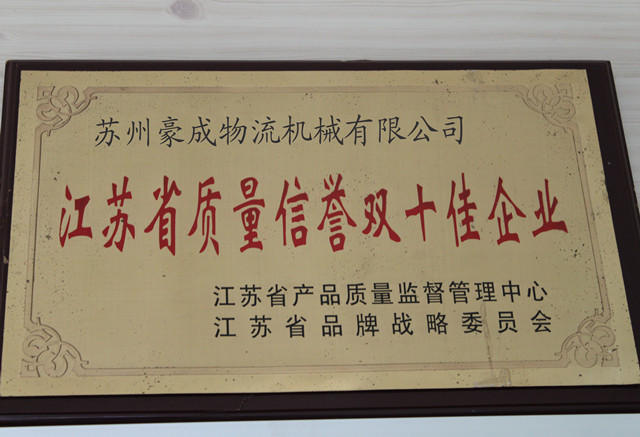 苏州豪成物流机械有限公司
江苏省质量信誉双十佳企业
江苏省产品质量监督管理中心
江苏省品牌战略委员会